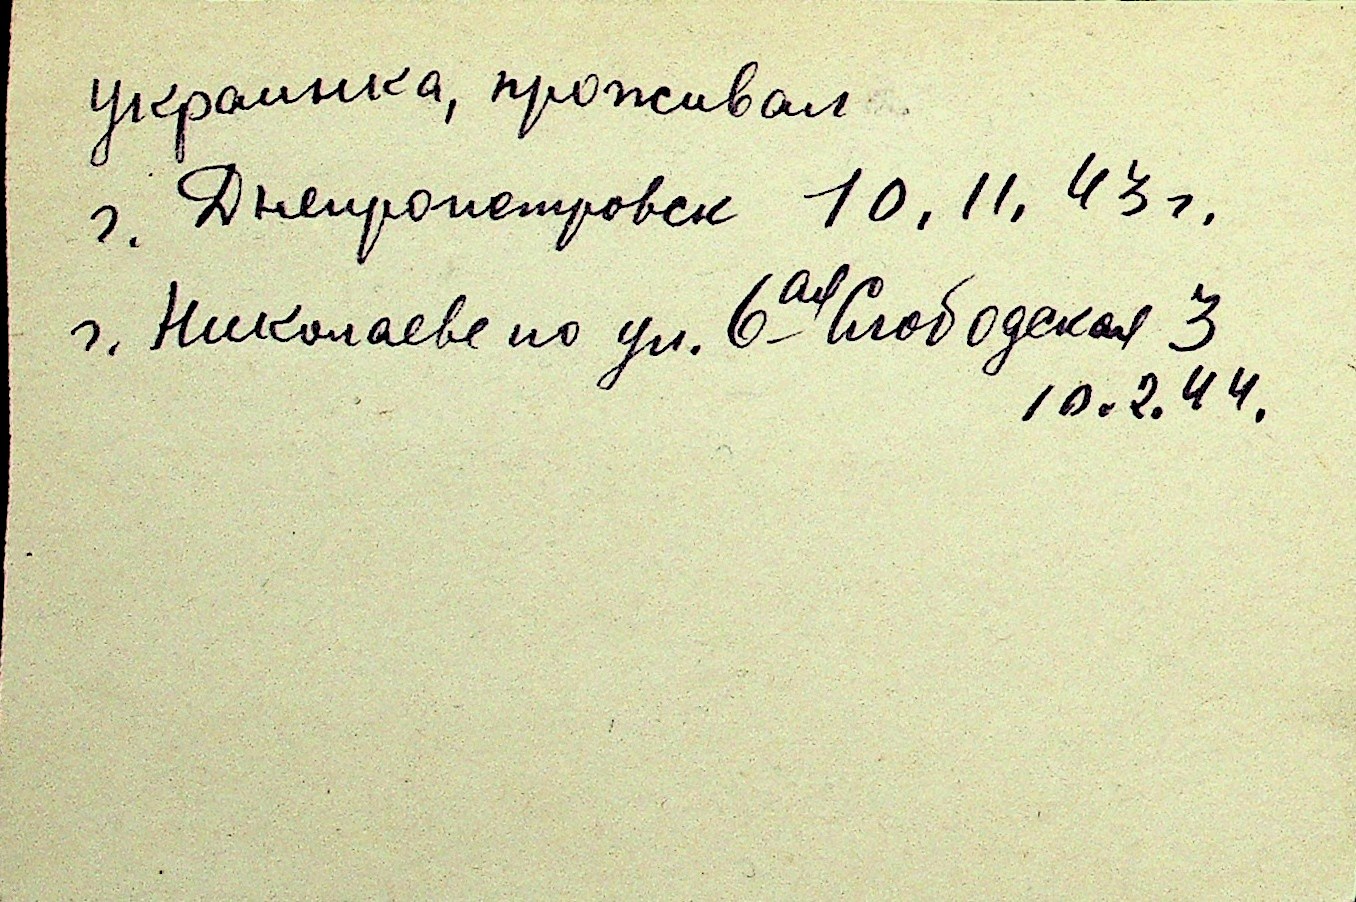 украинка, проживал
г. Днепропетровск 10.11.43г.
г. Николаеве по ул. 6ая Слободская 3
10.2.44.